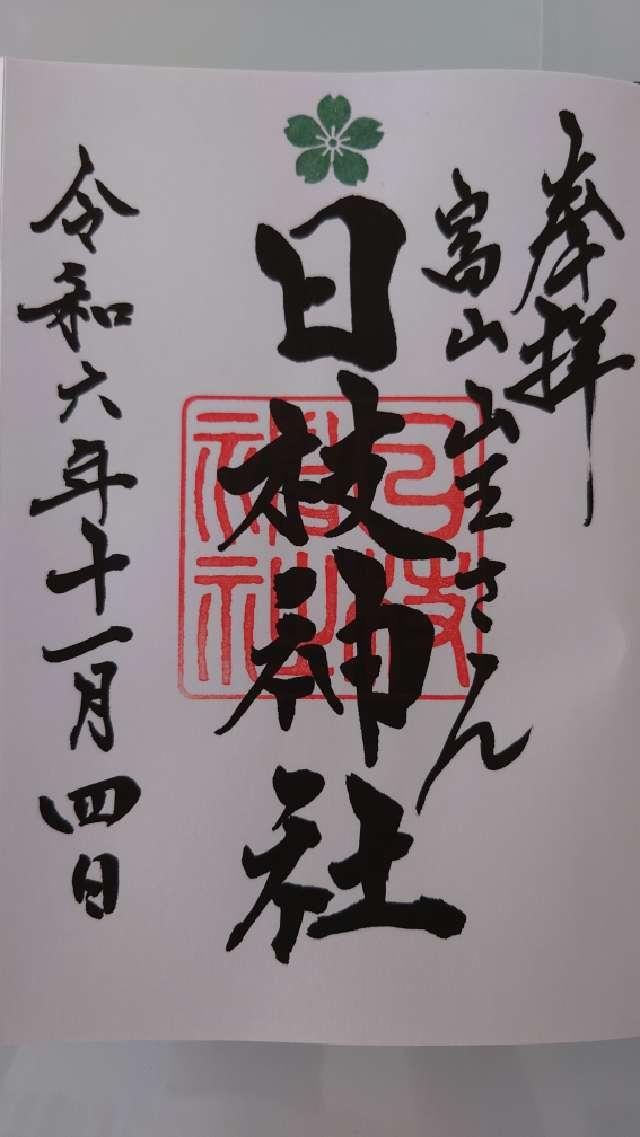 奉拝
富山山王さん
日枝神社
日枝神社
令和六年十一月四日